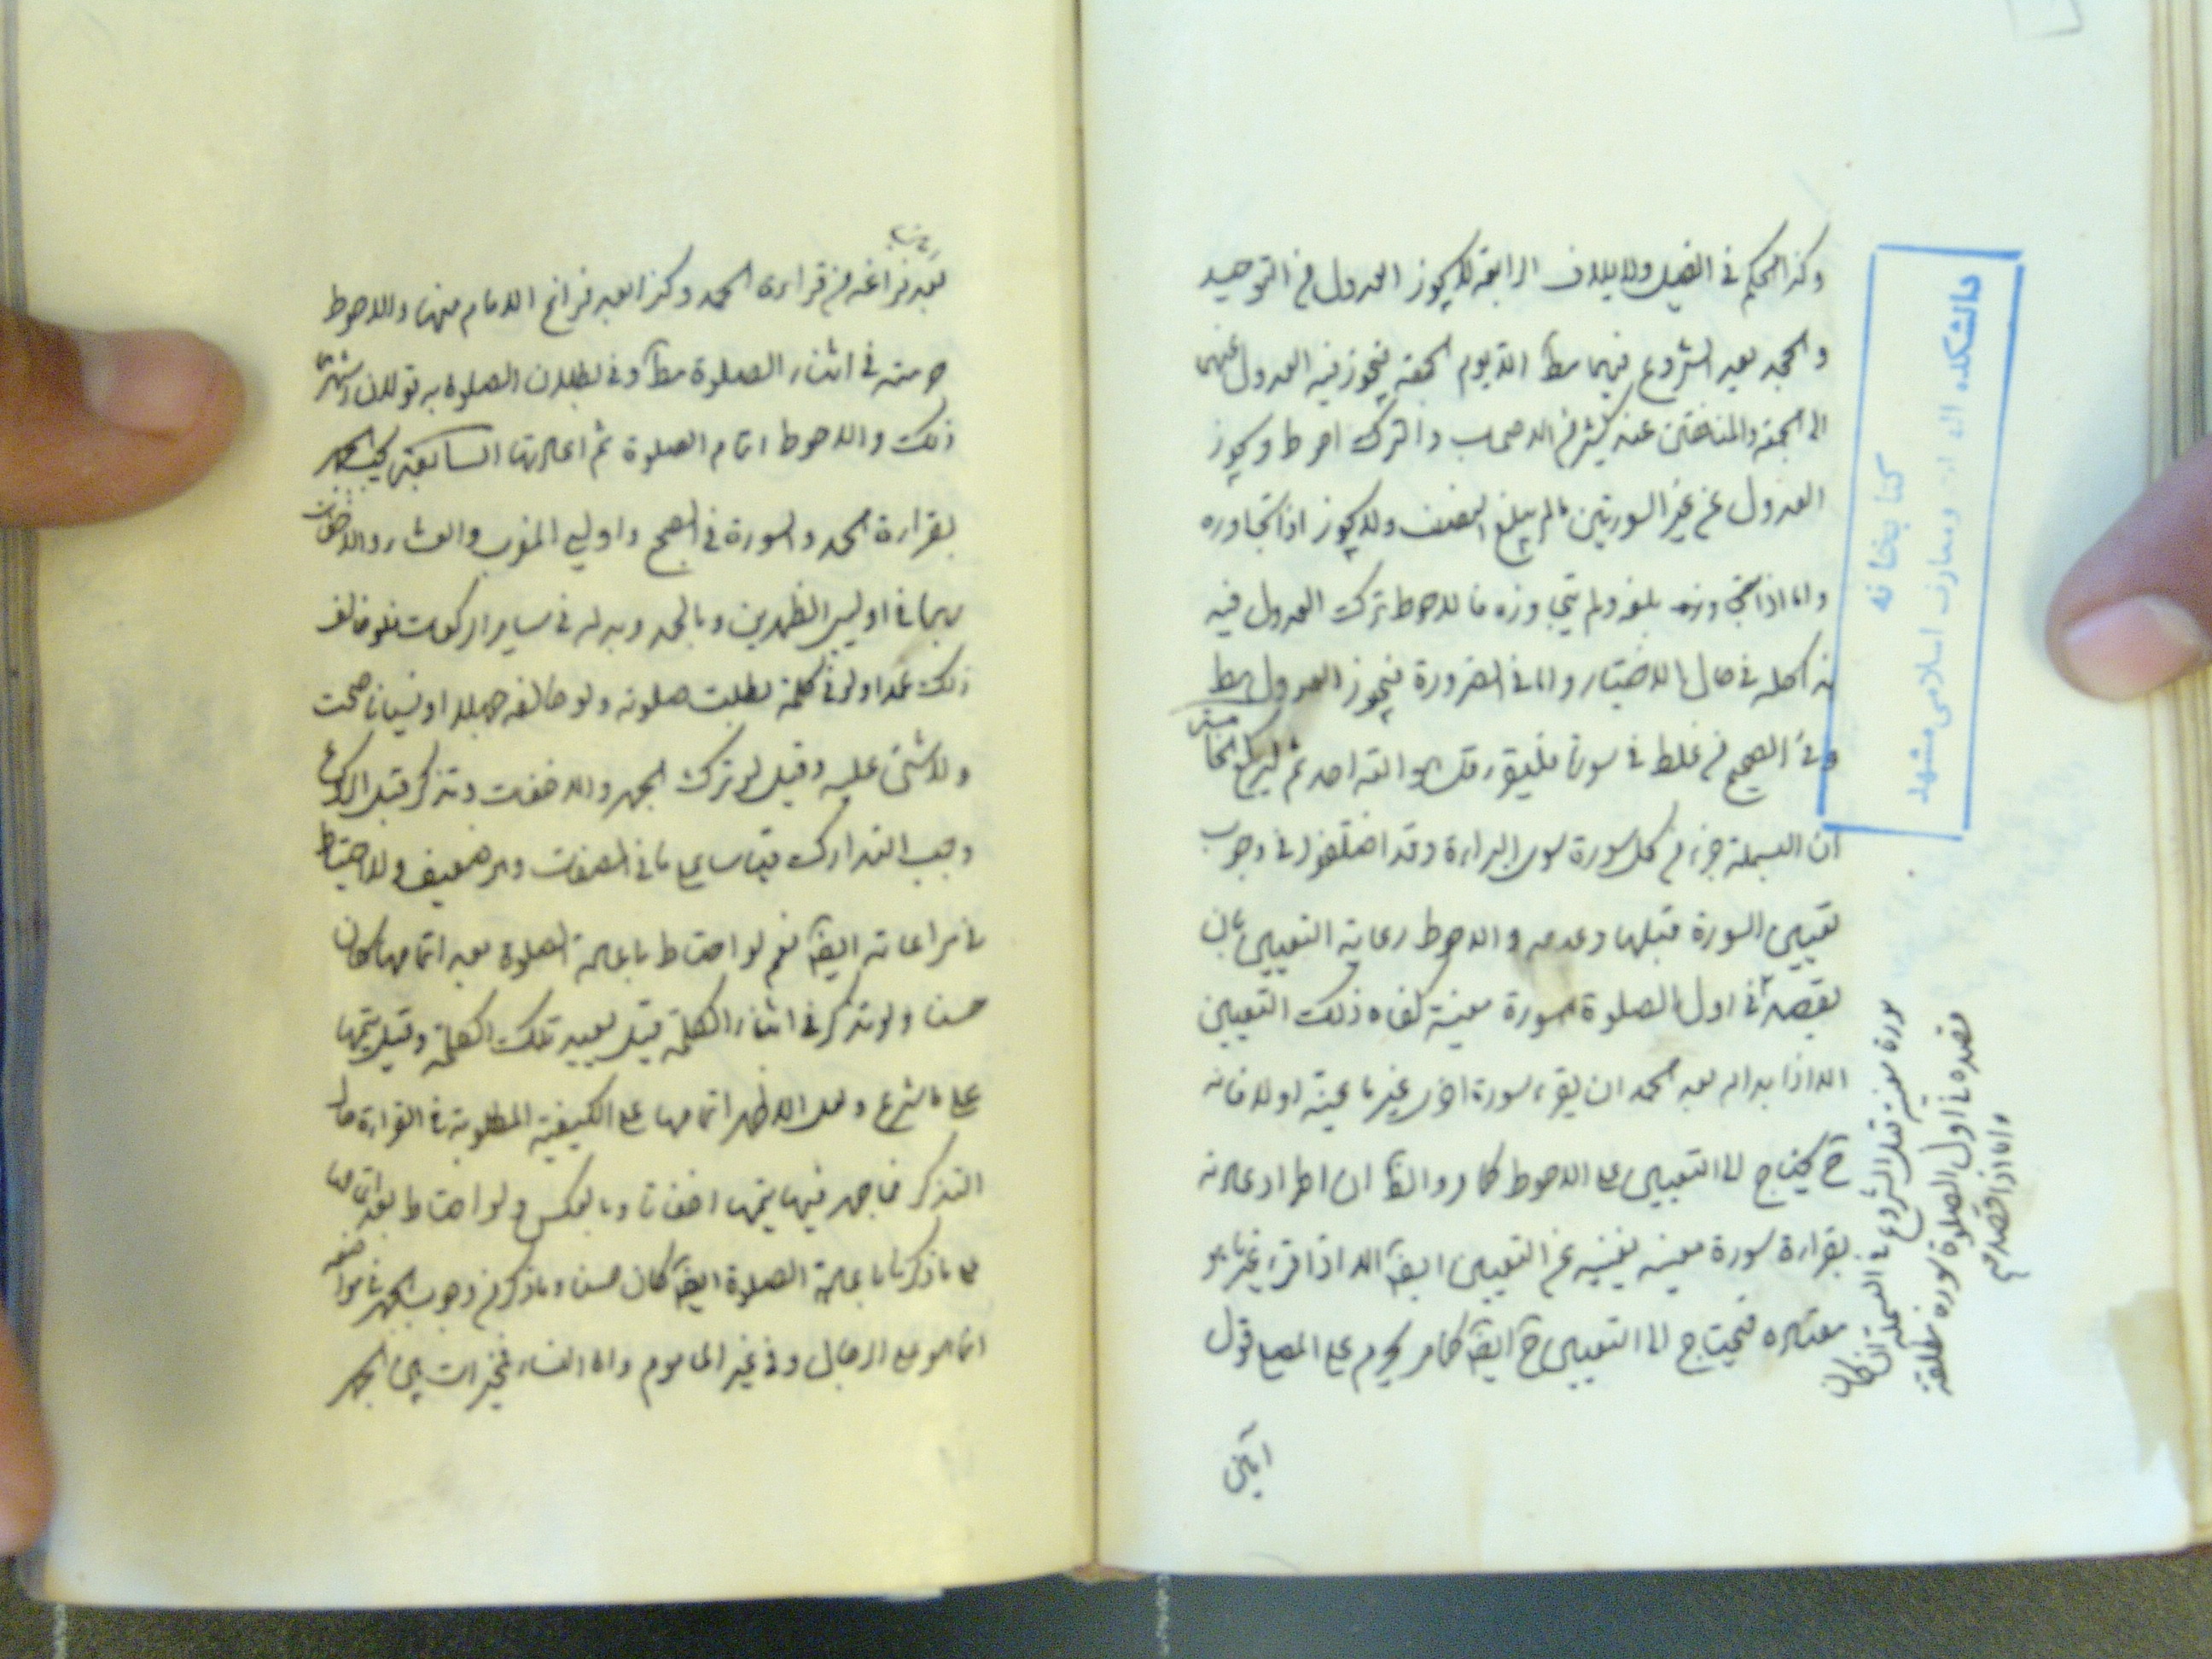 وكذا الحكم في الفيل والايلاف الرابعة لا يجوز العدول من التوحيد
والجحد بعد الشروع فيهما مط الا يوم الجمعة فيجوز فيه العدول عنهما
الى الجمعة والمنافقين عند كثير من الاصحاب والترك احوط ويجوز
العدول عن غير السورتين مالم يبلغ النصف ولا يجوز اذا تجاوزه
واما اذا بلغه ولم يتجاوزه فالاحوط ترك العدول فيه
في حال الاختيار واما في الضرورة فيجوز العدول مط
وفي الصحيح من غلط في سورة فليقرء قل هو الله احد ثم ليركع الخامسة
ان البسملة جزء من كل سورة سوى البراءة وقد اختلفوا في وجوب
تعيين السورة قبلها وعدمه والاحوط رعاية التعيين بان
يقصد في اول الصلوة سورة معينة كفاه ذلك التعيين
الا اذا بدا له بعد الحمد ان يقرء سورة اخرى غير ما عينه اولا فانه
ح يحتاج الى التعيين على الاحوط كما مر والظ ان اطراد عادته
بقراءة سورة معينة يغنيه عن التعيين ايضا الا اذا قرء غير ما هو
معتاده فيحتاج الى التعيين ح ايضا كما مر يحرم على المصلي قول
آمين
سورة معينة قبل الشروع في البسملة ان كان
قصده في اول الصلوة سورة مطلقة
واما اذا قصد
دانشكده
ومعارف اسلامى مشهد
كتابخانه
بعد فراغه من قراءة الحمد وكذا بعد فراغ الامام منها والاحوط
حرمته في اثناء الصلوة مط وفي بطلان الصلوة به قولان اشهرهما
ذلك والاحوط اتمام الصلوة ثم اعادتها السابعة يجب الجهر
بقراءة الحمد والسورة في الصبح واوليي المغرب والعشاء والاخفات
بهما في اوليي الظهرين وبالحمد وبدله في ساير الركعات فلو خالف
ذلك عمدا ولو في كلمة بطلت صلوته ولو خالفه جهلا او نسيانا صحت
ولا شئ عليه وقيل لو ترك الجهر والاخفات وتذكر قبل الركوع
وجب التدارك قياسا على ما في الصفات وهو ضعيف والاحتياط
في مراعاته ايضا نعم لو احتاط باعادة الصلوة بعد اتمامها كان
حسنا ولو تذكر في اثناء الكلمة قيل يعيد تلك الكلمة وقيل يتمها
على ما شرع ولعل الاظهر اتمامها على الكيفية المطلوبة في القراءة حال
التذكر فما جهر فيها يتمها اخفاتا وبالعكس ولو احتاط بعد اتمامها
على ما ذكرنا باعادة الصلوة ايضا كان حسنا وما ذكر من وجوب الجهر في مواضعه
انما هو على الرجال وفي غير الماموم واما النساء فمخيرات بين الجهر